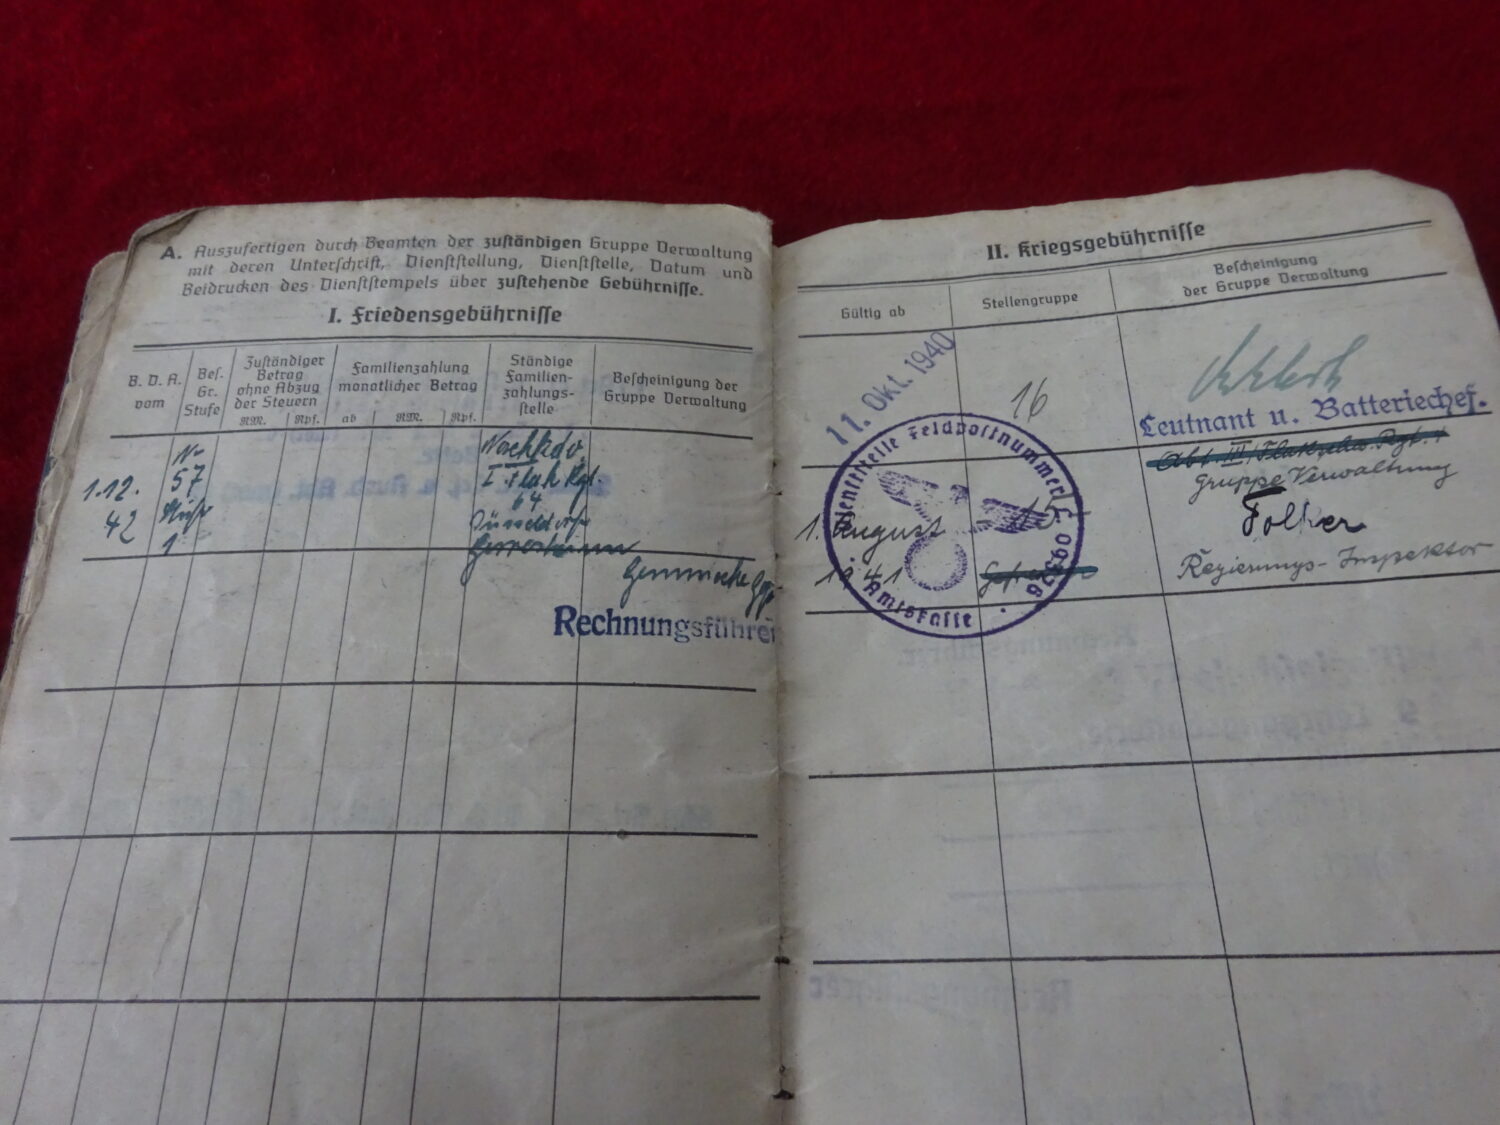 A. Auszufertigen durch Beamten der zuständigen Gruppe Verwaltung
mit deren Unterschrift, Dienststellung, Dienststelle, Datum und
Beidrucken des Dienststempels über zustehende Gebührnisse.
I. Friedensgebührnisse
B. D. A.
vom
Bes.
Gr.
Stufe
Zuständiger
Betrag
ohne Abzug
der Steuern
RM. Rpf.
Familienzahlung
monatlicher Betrag
ab RM. Rpf.
Ständige
Familien-
zahlungs-
stelle
Bescheinigung der
Gruppe Verwaltung
1.12.
42
57
1
I. Flak Rgt.
64
Düsseldorf
Rechnungsführer
II. Kriegsgebührnisse
Gültig ab
Stellengruppe
Bescheinigung
der Gruppe Verwaltung
11. Okt. 1940
16
Leutnant u. Batteriechef.
Dienststelle Feldpostnummer L 09326
Amtskasse
1. August
1941
15
Gruppe Verwaltung
Regierungs-Inspektor